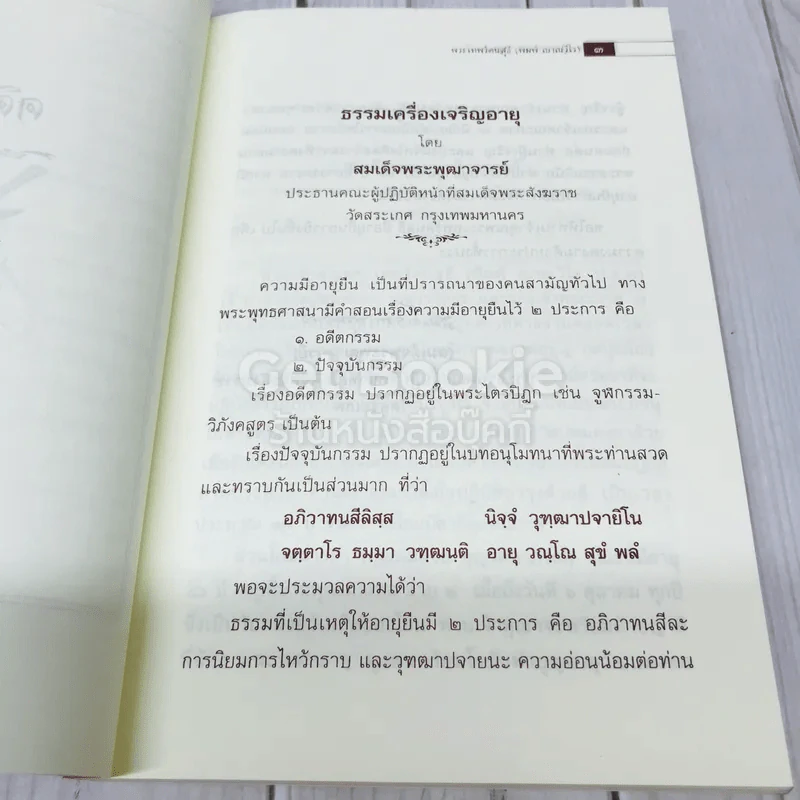 ๓
ธรรมเครื่องเจริญอายุ
โดย
สมเด็จพระพุฒาจารย์
ประธานคณะผู้ปฏิบัติหน้าที่สมเด็จพระสังฆราช
วัดสระเกศ กรุงเทพมหานคร
ความมีอายุยืน เป็นที่ปรารถนาของคนสามัญทั่วไป ทาง
พระพุทธศาสนามีคำสอนเรื่องความมีอายุยืนไว้ ๒ ประการ คือ
๑. อดีตกรรม
๒. ปัจจุบันกรรม
Get Bookie
เรื่องอดีตกรรม ปรากฏอยู่ในพระไตรปิฎก เช่น จูฬกรรม-
วิภังคสูตร เป็นต้น
ร้านหนังสือบุ๊คกี้
เรื่องปัจจุบันกรรม ปรากฏอยู่ในบทอนุโมทนาที่พระท่านสวด
และทราบกันเป็นส่วนมาก ที่ว่า
อภิวาทนสีลิสฺส นิจฺจํ วุฑฺฒาปจายิโน
จตฺตาโร ธมฺมา วฑฺฒนฺติ อายุ วณฺโณ สุขํ พลํ
พอจะประมวลความได้ว่า
ธรรมที่เป็นเหตุให้อายุยืนมี ๒ ประการ คือ อภิวาทนสีละ
การนิยมการไหว้กราบ และวุฑฒาปจายนะ ความอ่อนน้อมต่อท่าน